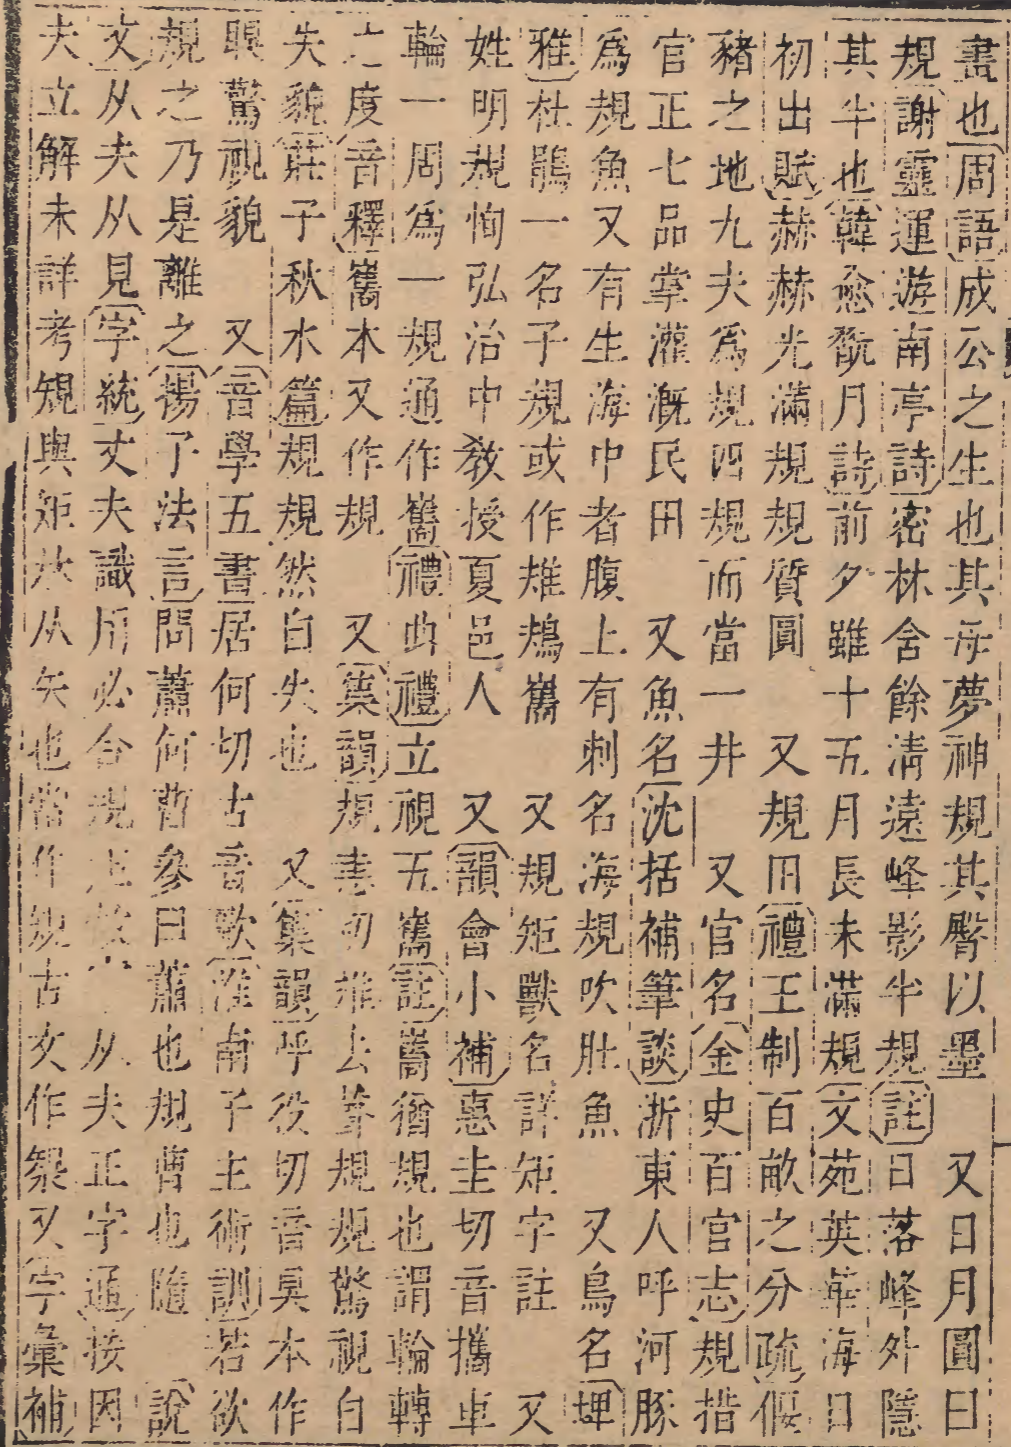 畫也周語成公之生也其母夢神規其臀以墨 又日月圓曰
規謝靈運遊南亭詩密林含餘清遠峰影半規註日落峰外隱
其半也韓愈翫月詩前夕雖十五月長未滿規文苑英華海日
初出賦赫赫光滿規規質圓 又規田禮王制百畝之分疏偃
豬之地九夫爲規四規而當一井 又官名金史百官志規措
官正七品掌灌漑民田 又魚名沈括補筆談浙東人呼河豚
爲規魚又有生海中者腹上有刺名海規吹肚魚 又鳥名埤
雅杜鵑一名子規或作雉鳺巂 又規矩獸名詳矩字註 又
姓明規恂弘治中敎授夏邑人 又韻會小補惠圭切音攜車
輪一周爲一規通作巂禮曲禮立視五巂註巂猶規也謂輪轉
之度音釋巂本又作規 又集韻規恚切 去聲規規驚視自
失貌莊子秋水篇規規然自失也 又集韻呼役切音狊本作
瞁驚視貌 又音學五書居何切古音歌淮南子主術訓若欲
規之乃是離之揚子法言問蕭何曹參曰蕭也規曹也隨 說
文从夫从見字統丈夫識用必合規 从夫正字通按因
夫立解未詳考規與矩 从矢也當作䂓古文作 又字彙補